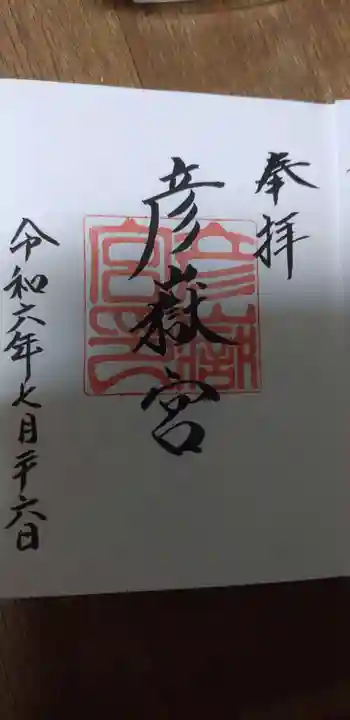 奉拝
彦嶽宮
令和六年七月二十六日